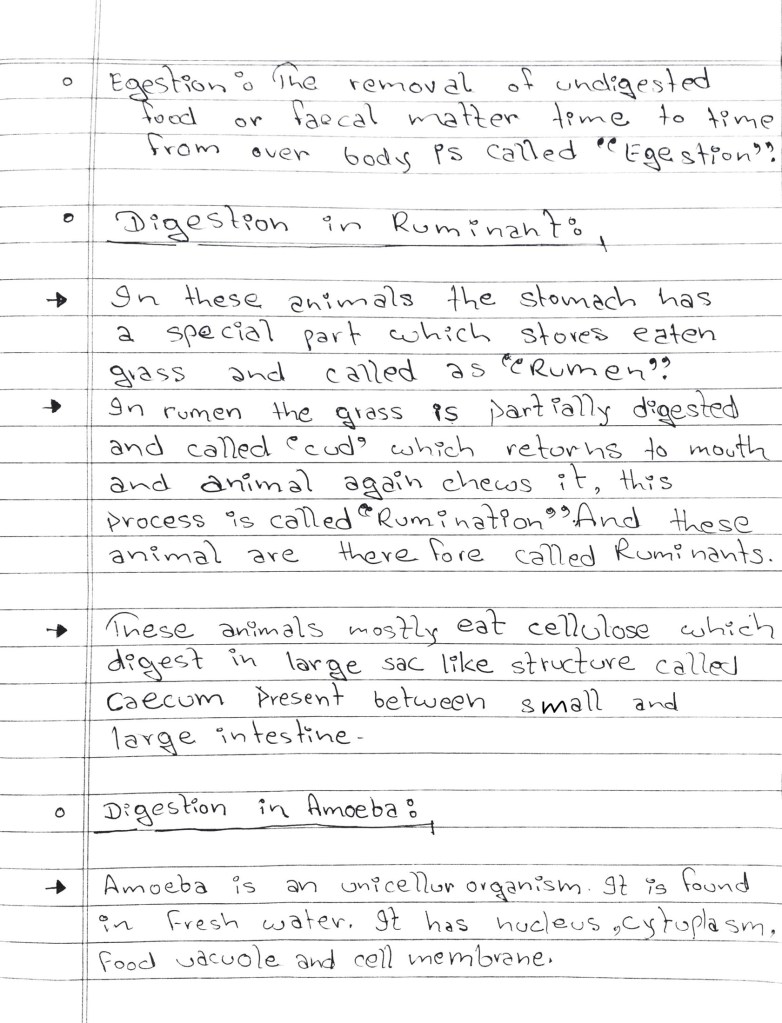 Egestion: The removal of undigested
food or faecal matter time to time
from over body is called "Egestion".
Digestion in Ruminant:
→ In these animals the stomach has
a special part which stores eaten
grass and called as "Rumen".
→ In rumen the grass is partially digested
and called 'cud' which returns to mouth
and animal again chews it, this
process is called "Rumination". And these
animal are there fore called Ruminants.
→ These animals mostly eat cellulose which
digest in large sac like structure called
Caecum Present between small and
large intestine-
Digestion in Amoeba:
→ Amoeba is an unicellur organism. It is found
in fresh water. It has nucleus, cytoplasm,
food vacuole and cell membrane.